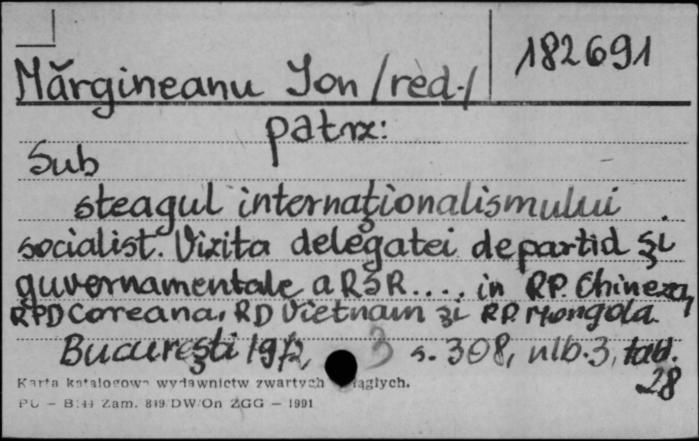 182691
Mărgineanu Ion /red./
patrz:
Sub
steagul internaţionalismului
socialist. Vizita delegatei de partid şi
guvernamentale a RSR.... in RP. Chineza,
RPD Coreana, RD Vietnam şi RP. Mongola.
Bucureşti 1972, s. 308, nlb. 3, tabl.
28
Karta katalogowa wydawnictw zwartych ciągłych.
PU – B/44 Zam. 819/DW/On ZGG – 1991